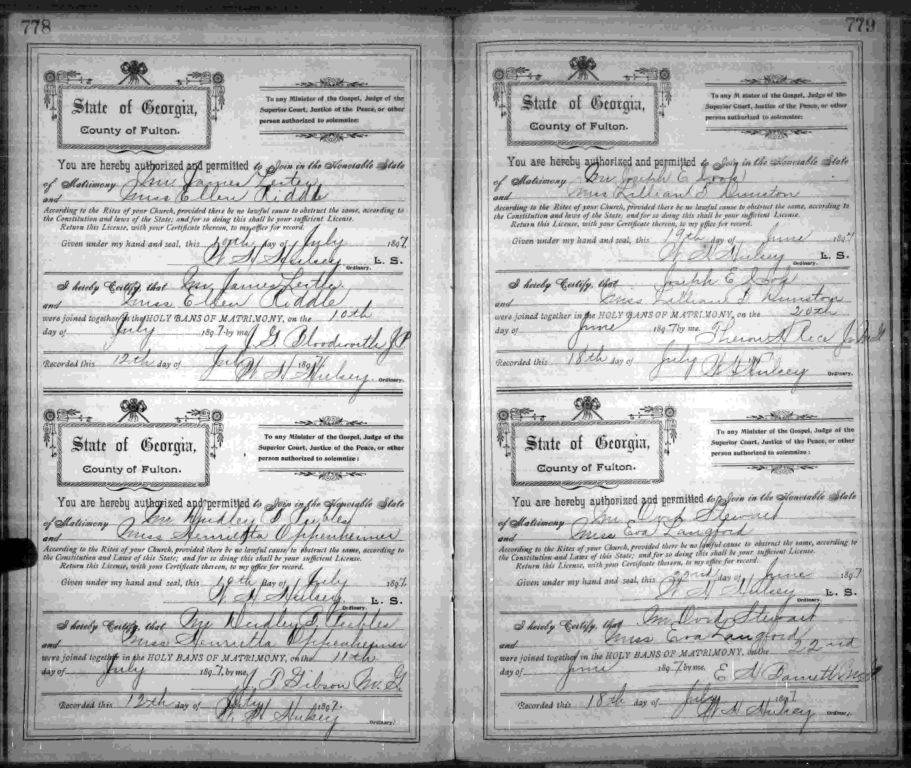 778
State of Georgia,
County of Fulton.
To any Minister of the Gospel, Judge of the
Superior Court, Justice of the Peace, or other
person authorized to solemnize:
You are hereby authorized and permitted to Join in the Honorable State
of Matrimony Mr. James
and Miss Ellen Riddle
According to the Rites of your Church, provided there be no lawful cause to obstruct the same, according to
the Constitution and laws of the State; and for so doing this shall be your sufficient License.
Return this License, with your Certificate thereon, to my office for record.
Given under my hand and seal, this day of July 1897
W H Hulsey L. S.
Ordinary.
I hereby Certify, that Mr. James
and Miss Ellen Riddle
were joined together in the HOLY BANS OF MATRIMONY, on the 10th
day of July 1897 by me, J G Bloodworth J P
Recorded this 12th day of July 1897
W H Hulsey. Ordinary.
State of Georgia,
County of Fulton.
To any Minister of the Gospel, Judge of the
Superior Court, Justice of the Peace, or other
person authorized to solemnize:
You are hereby authorized and permitted to Join in the Honorable State
of Matrimony Mr Dudley Peebles
and Miss Henrietta Oppenheimer
According to the Rites of your Church, provided there be no lawful cause to obstruct the same, according to
the Constitution and Laws of this State; and for so doing this shall be your sufficient License.
Return this License, with your Certificate thereon, to my office for record.
Given under my hand and seal, this 10th day of July 1897.
W H Hulsey L. S.
Ordinary.
I hereby Certify, that Mr Dudley Peebles
and Miss Henrietta Oppenheimer
were joined together in the HOLY BANS OF MATRIMONY, on the 11th
day of July 1897, by me, J P Gibson M. G.
Recorded this 12th day of July 1897.
W H Hulsey Ordinary.
779
State of Georgia,
County of Fulton.
To any Minister of the Gospel, Judge of the
Superior Court, Justice of the Peace, or other
person authorized to solemnize:
You are hereby authorized and permitted to Join in the Honorable State
of Matrimony Mr. Joseph E
and Miss Lillian Dunston
According to the Rites of your Church, provided there be no lawful cause to obstruct the same, according to
the Constitution and laws of the State; and for so doing this shall be your sufficient License.
Return this License, with your Certificate thereon, to my office for record.
Given under my hand and seal, this 19th day of June 1897
W H Hulsey L. S.
Ordinary.
I hereby Certify, that Joseph E
and Miss Lillian Dunston
were joined together in the HOLY BANS OF MATRIMONY, on the 20th
day of June 1897 by me, Theron H Rice
Recorded this 18th day of July
W H Hulsey Ordinary.
State of Georgia,
County of Fulton.
To any Minister of the Gospel, Judge of the
Superior Court, Justice of the Peace, or other
person authorized to solemnize:
You are hereby authorized and permitted to Join in the Honorable State
of Matrimony Mr Stewart
and Miss Eva Langford
According to the Rites of your Church, provided there be no lawful cause to obstruct the same, according to
the Constitution and Laws of this State; and for so doing this shall be your sufficient License.
Return this License, with your Certificate thereon, to my office for record.
Given under my hand and seal, this 22nd day of June 1897
W H Hulsey L. S.
Ordinary.
I hereby Certify, that Mr Stewart
and Miss Eva Langford
were joined together in the HOLY BANS OF MATRIMONY, on the 22nd
day of June 1897 by me, E H
Recorded this 18th day of July 1897
W H Hulsey Ordinary.